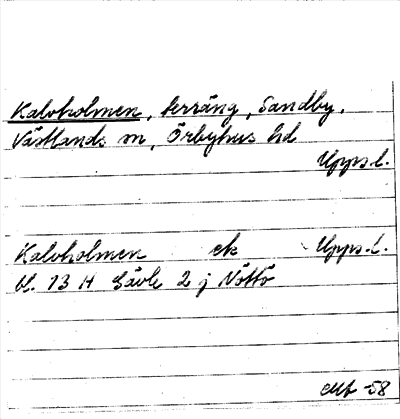 Kalvholmen, terräng, Sandby,
Västlands sn, Örbyhus hd
Upps.l.
Kalvholmen ek Upps.l.
Bl. 13 H Gävle 2 j Nöttö
-58